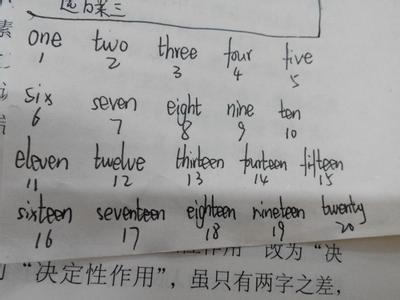 one two three four five
1 2 3 4 5
six seven eight nine ten
6 7 8 9 10
eleven twelve thirteen fourteen fifteen
11 12 13 14 15
sixteen seventeen eighteen nineteen twenty
16 17 18 19 20
作用”改为“决
“决定性作用”，虽只有两字之差，